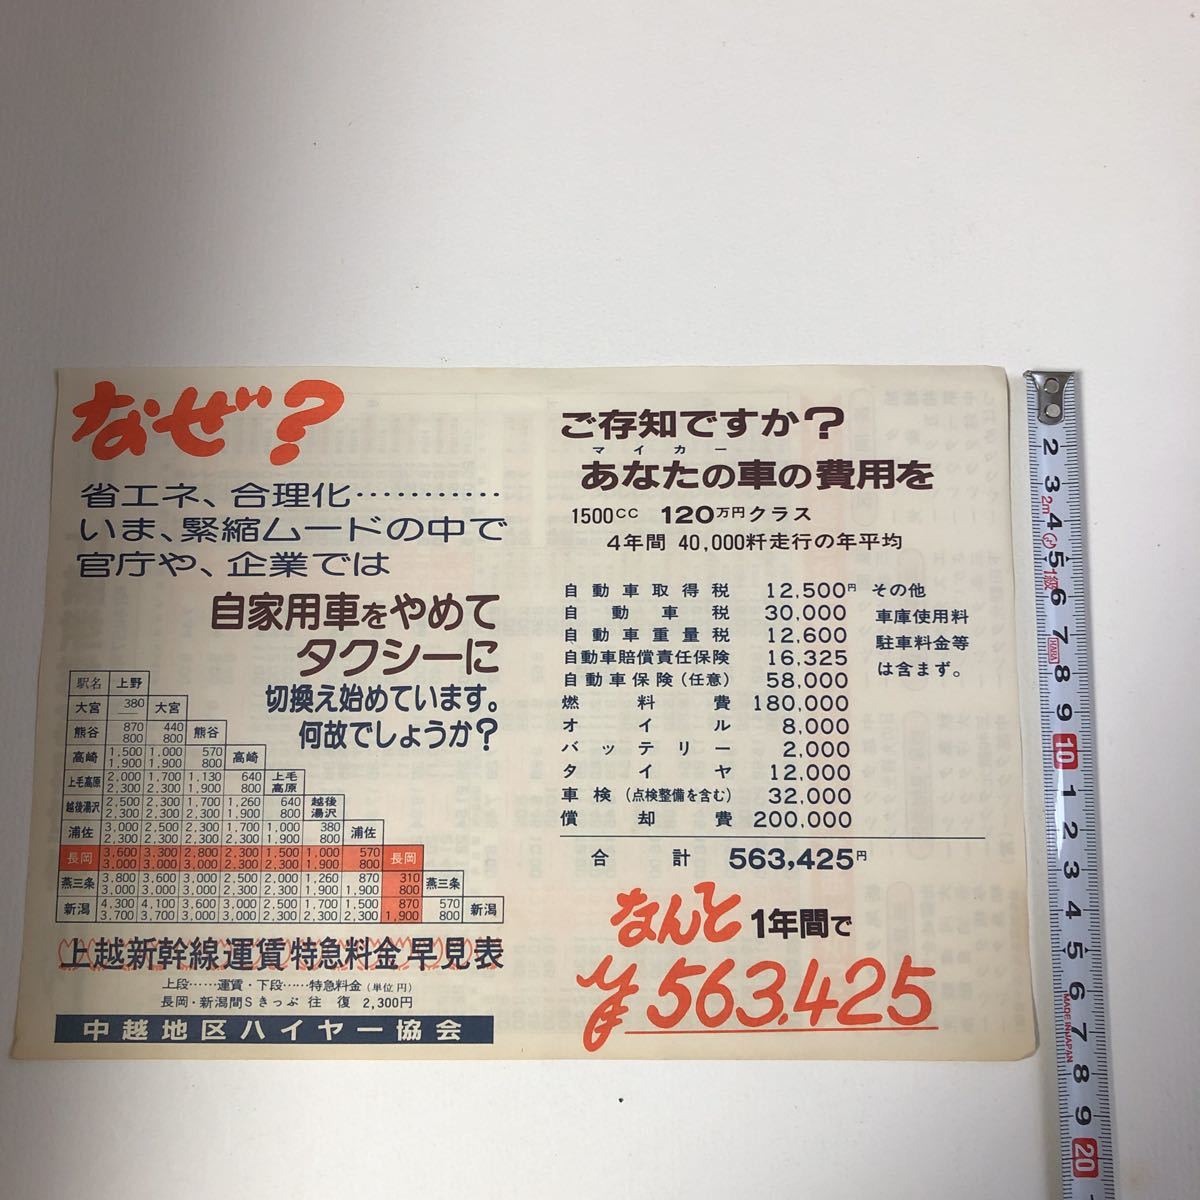 なぜ?
省エネ、合理化…………
いま、緊縮ムードの中で
官庁や、企業では
自家用車をやめて
タクシーに
切換え始めています。
何故でしょうか?
駅名 上野
大宮 380 大宮
熊谷 870 440 熊谷
800 800
高崎 1,500 1,000 570 高崎
1,900 1,900 800
上毛高原 2,000 1,700 1,130 640 上毛高原
2,300 2,300 1,900 800
越後湯沢 2,500 2,300 1,700 1,260 640 越後湯沢
2,300 2,300 2,300 1,900 800
浦佐 3,000 2,500 2,300 1,700 1,000 380 浦佐
2,300 2,300 2,300 2,300 1,900 800
長岡 3,600 3,300 2,800 2,300 1,500 1,000 570 長岡
3,000 3,000 3,000 2,300 2,300 1,900 800
燕三条 3,800 3,600 3,000 2,500 2,000 1,260 870 310 燕三条
3,000 3,000 3,000 2,300 2,300 1,900 1,900 800
新潟 4,300 4,100 3,600 3,000 2,500 2,000 1,500 870 570 新潟
3,700 3,700 3,000 3,000 2,300 2,300 1,900 1,900 800
上越新幹線運賃特急料金早見表
上段……運賃・下段……特急料金(単位 円)
長岡・新潟間Sきっぷ 往 復 2,300円
中越地区ハイヤー協会
ご存知ですか?
マイカー
あなたの車の費用を
1500CC 120万円クラス
4年間 40,000粁走行の年平均
自動車取得税 12,500円 その他
自動車税 30,000 車庫使用料
自動車重量税 12,600 駐車料金等
自動車賠償責任保険 16,325 は含まず。
自動車保険(任意) 58,000
燃料費 180,000
オイル 8,000
バッテリー 2,000
タイヤ 12,000
車検(点検整備を含む) 32,000
償却費 200,000
合計 563,425円
なんと 1年間で
¥563.425
2 3 4 5 6 7 8 9 10 1 2 3 4 5 6 7 8 9 20
2m
1級
KANA
MADE IN JAPAN